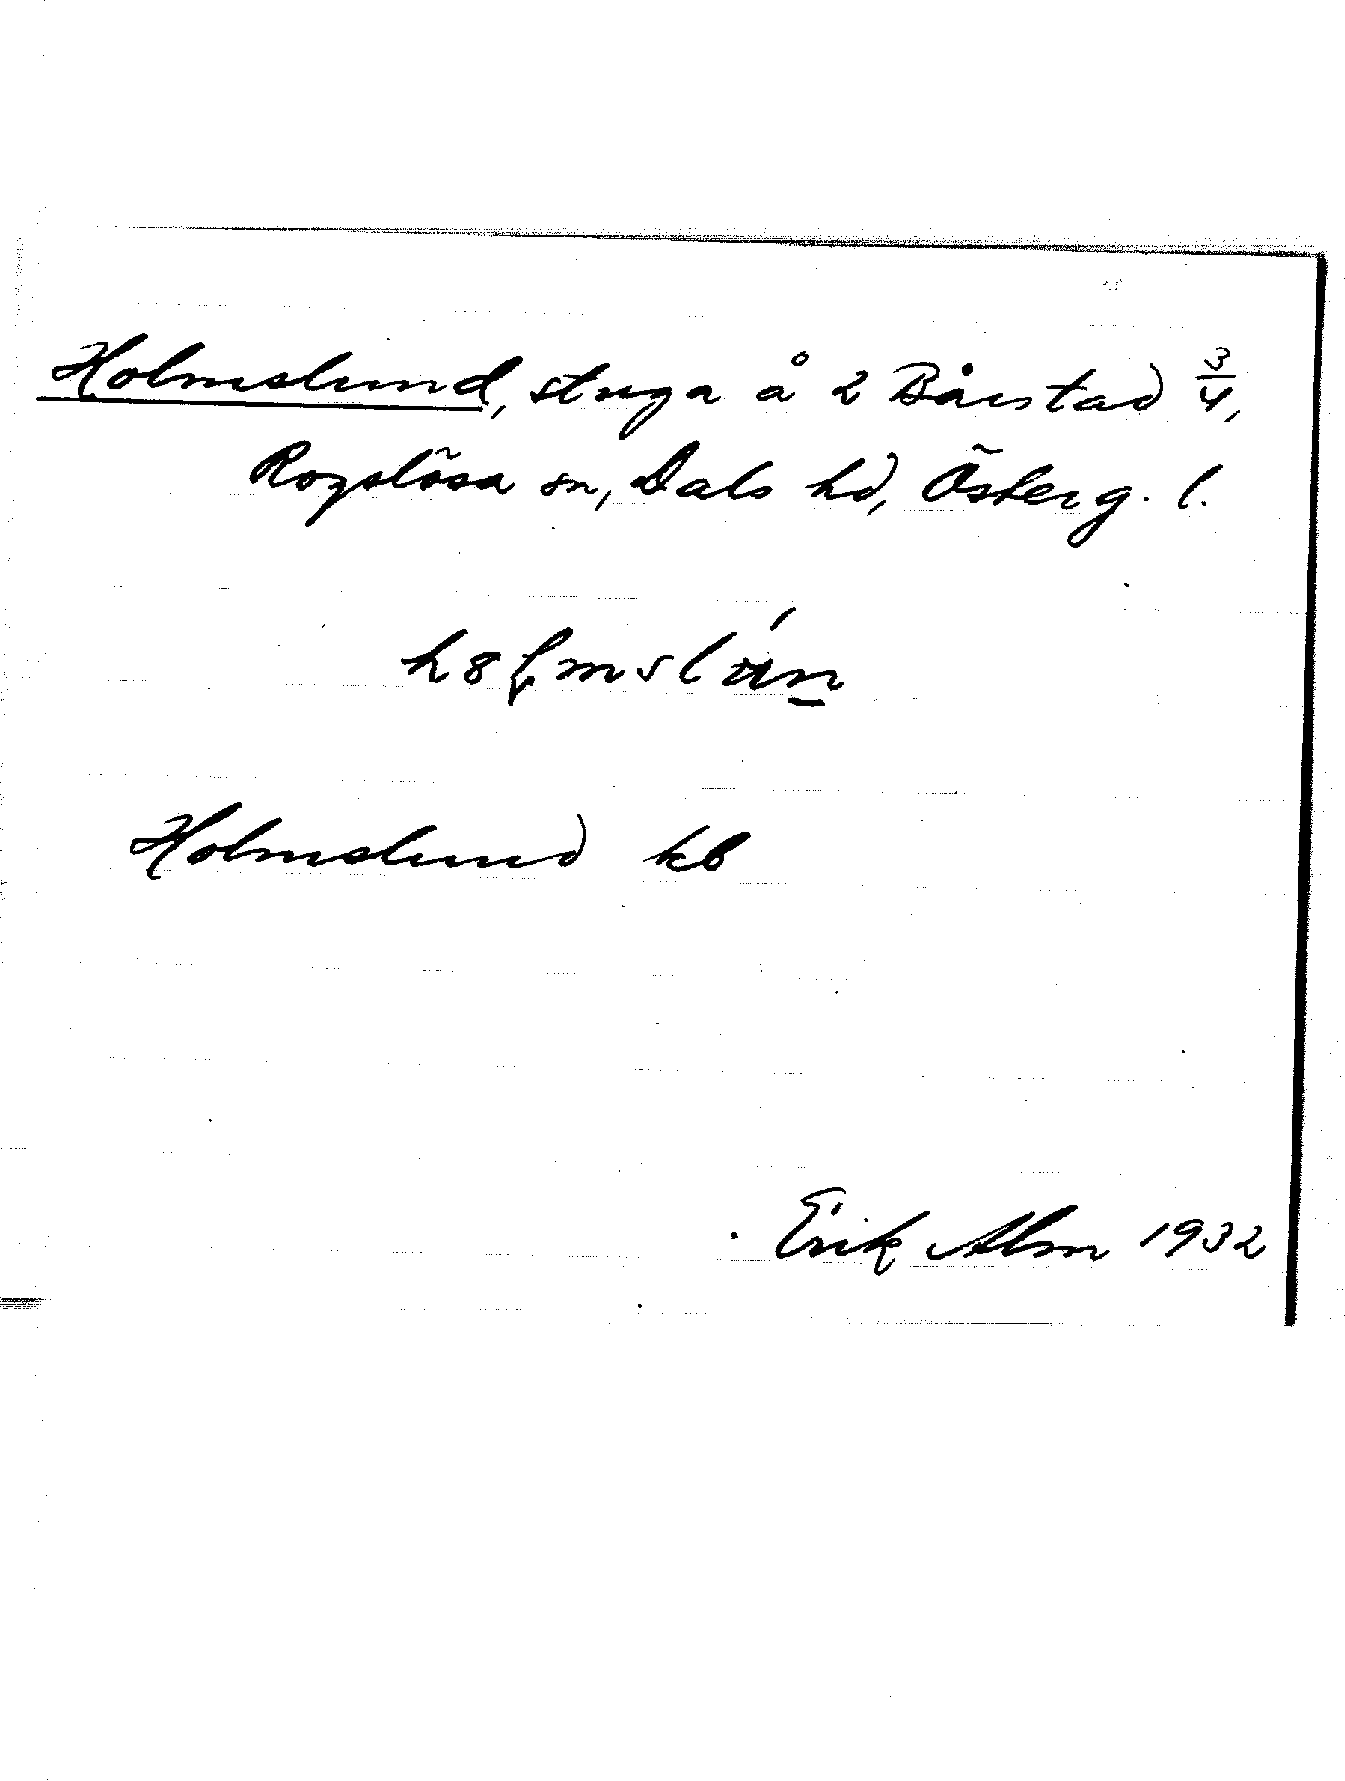 Holmslund, stuga å 2 Bårstad 3/4,
Rogslösa sn, Dals hd, Österg. l.
Holmslund kb
Erik Alm 1932